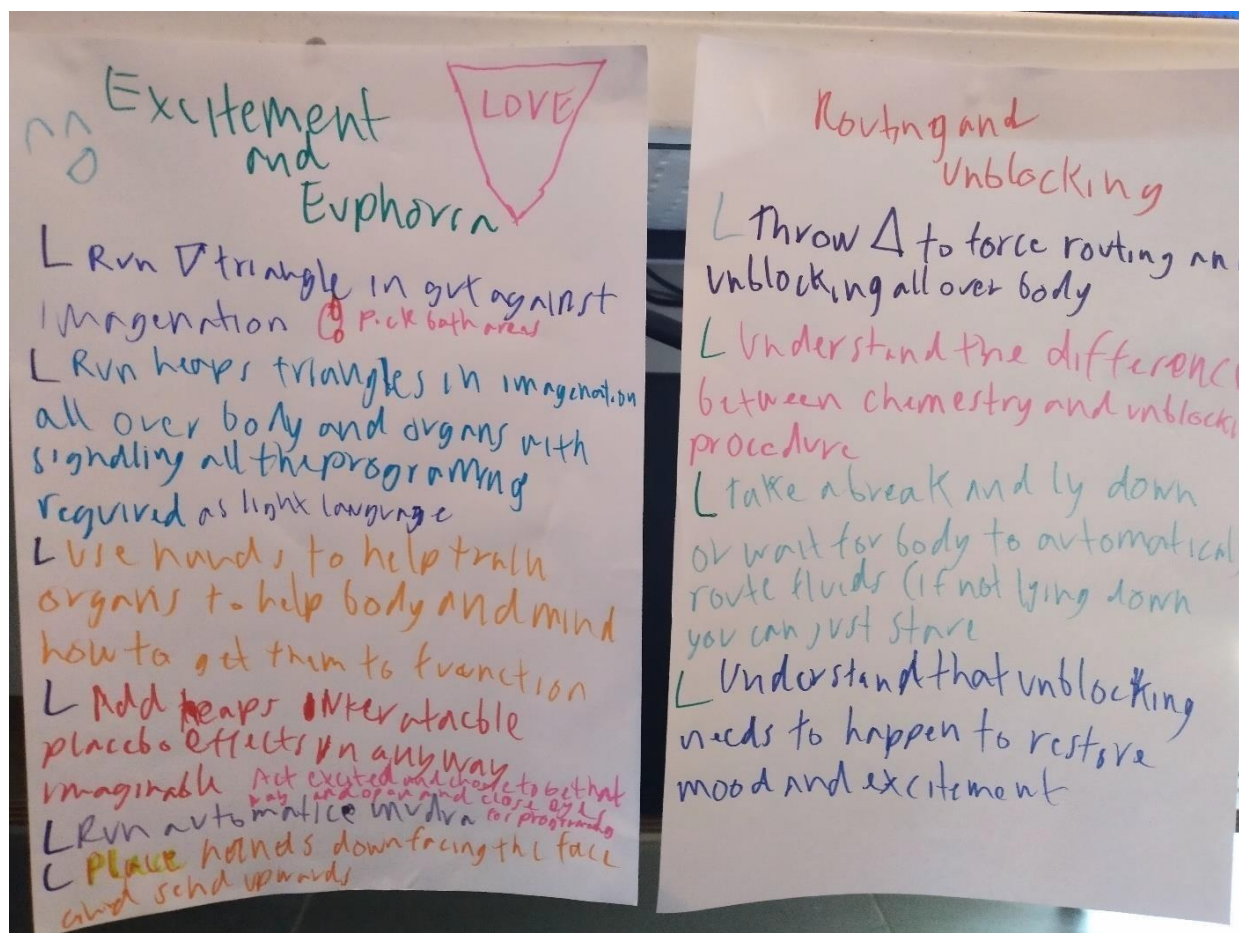 Excitement
and
Euphoria
LOVE
L Run ▽ triangle in gut against
imagenation Pick both areas
L Run heaps triangles in imagenation
all over body and organs with
signalling all the programing
required as light language
L Use hands to help train
organs to help body and mind
how to get them to function
L Add heaps
placebo effects in any way
imaginable Act excited and choose to be that
way and open and close eyes
L Run automatice mudra for programing
L Place hands down facing the face
and send upwards
Routing and
Unblocking
L Throw Δ to force routing an
unblocking all over body
L Understand the differenc
between chemestry and unblocki
procedure
L take a break and ly down
or wait for body to automatical
route fluids (if not lying down
you can just stare
L Understand that unblocking
needs to happen to restore
mood and excitement